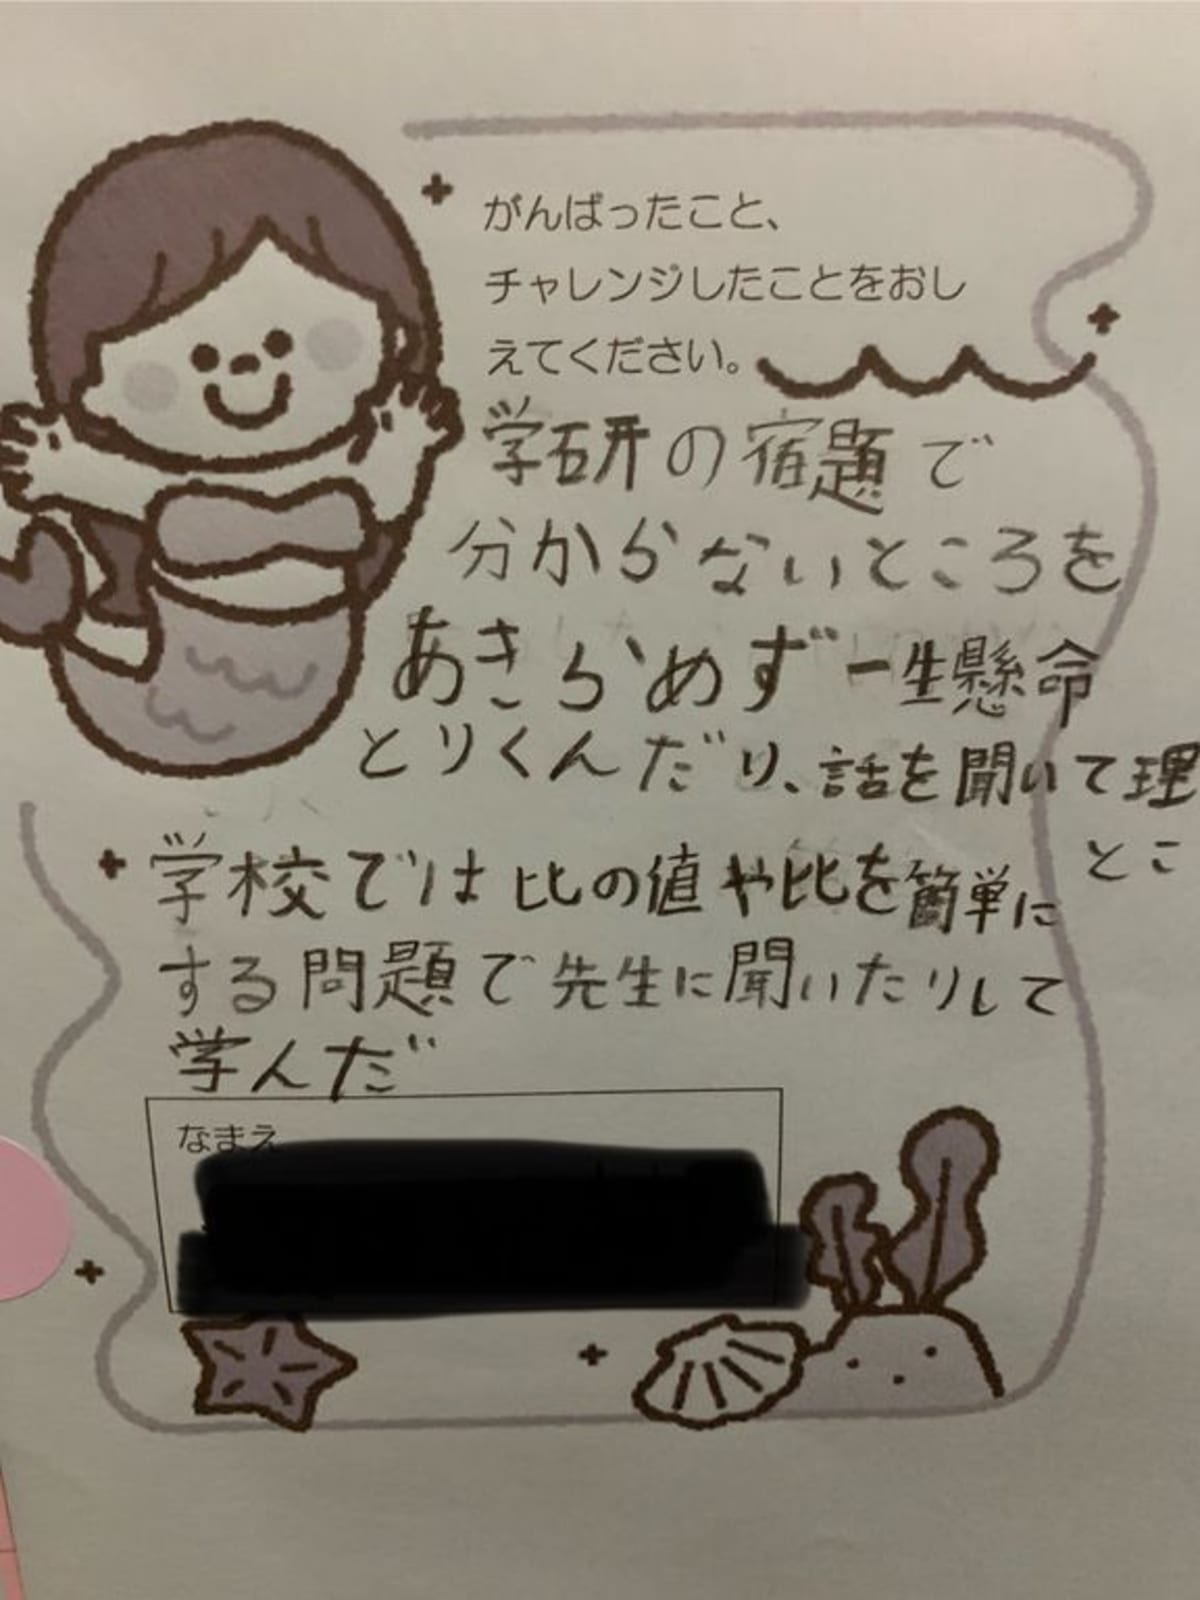 がんばったこと、
チャレンジしたことをおし
えてください。
学研の宿題で
分からないところを
あきらめず一生懸命
とりくんだり、話を聞いて理
とこ
学校では比の値や比を簡単に
する問題で先生に聞いたりして
学んだ
なまえ